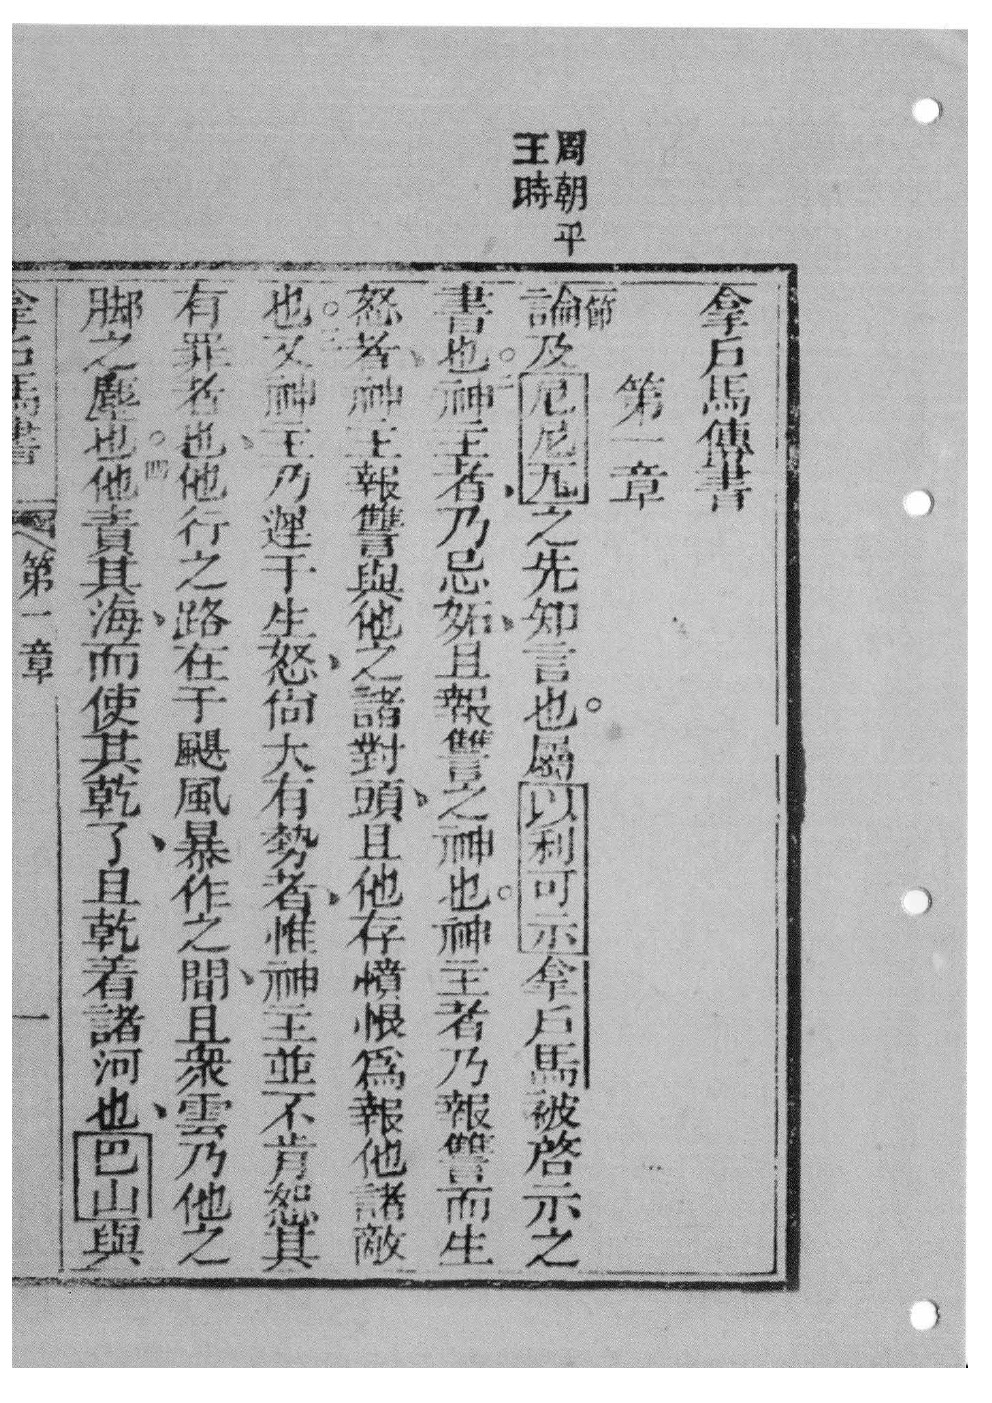 周朝平
王時
拿戶馬傳書
第一章
一節論及尼尼瓦之先知言也。屬以利可示拿戶馬被啓示之
書也。二神主者、乃忌妬、且報讐之神也。神主者乃報讐而生
怒者、神主報讐與他之諸對頭、且他存憤恨爲報他諸敵
也。三又神主乃遲于生怒、尙大有勢者、惟神主並不肯恕其
有罪者也、他行之路在于颶風暴作之間、且衆雲乃他之
脚之塵也。四他責其海、而使其乾了、且乾着諸河也、巴山與
拿戶馬書
第一章
一